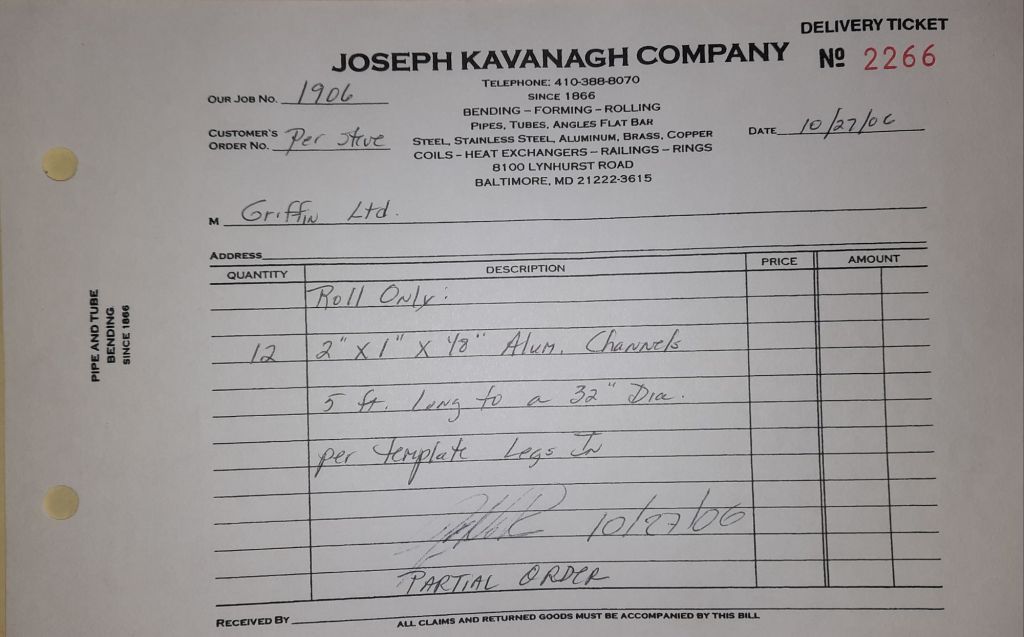 DELIVERY TICKET
JOSEPH KAVANAGH COMPANY
Nº 2266
TELEPHONE: 410-388-8070
SINCE 1866
OUR JOB NO. 1906
BENDING – FORMING – ROLLING
PIPES, TUBES, ANGLES FLAT BAR
CUSTOMER'S ORDER NO. Per Steve
STEEL, STAINLESS STEEL, ALUMINUM, BRASS, COPPER
DATE 10/27/06
COILS – HEAT EXCHANGERS – RAILINGS – RINGS
8100 LYNHURST ROAD
BALTIMORE, MD 21222-3615
M Griffin Ltd.
ADDRESS
QUANTITY DESCRIPTION PRICE AMOUNT
Roll Only:
12 2" x 1" x 1/8" Alum. Channels
5 ft. Long to a 32" Dia.
per template Legs In
10/27/06
PARTIAL ORDER
RECEIVED BY
ALL CLAIMS AND RETURNED GOODS MUST BE ACCOMPANIED BY THIS BILL
PIPE AND TUBE
BENDING
SINCE 1866